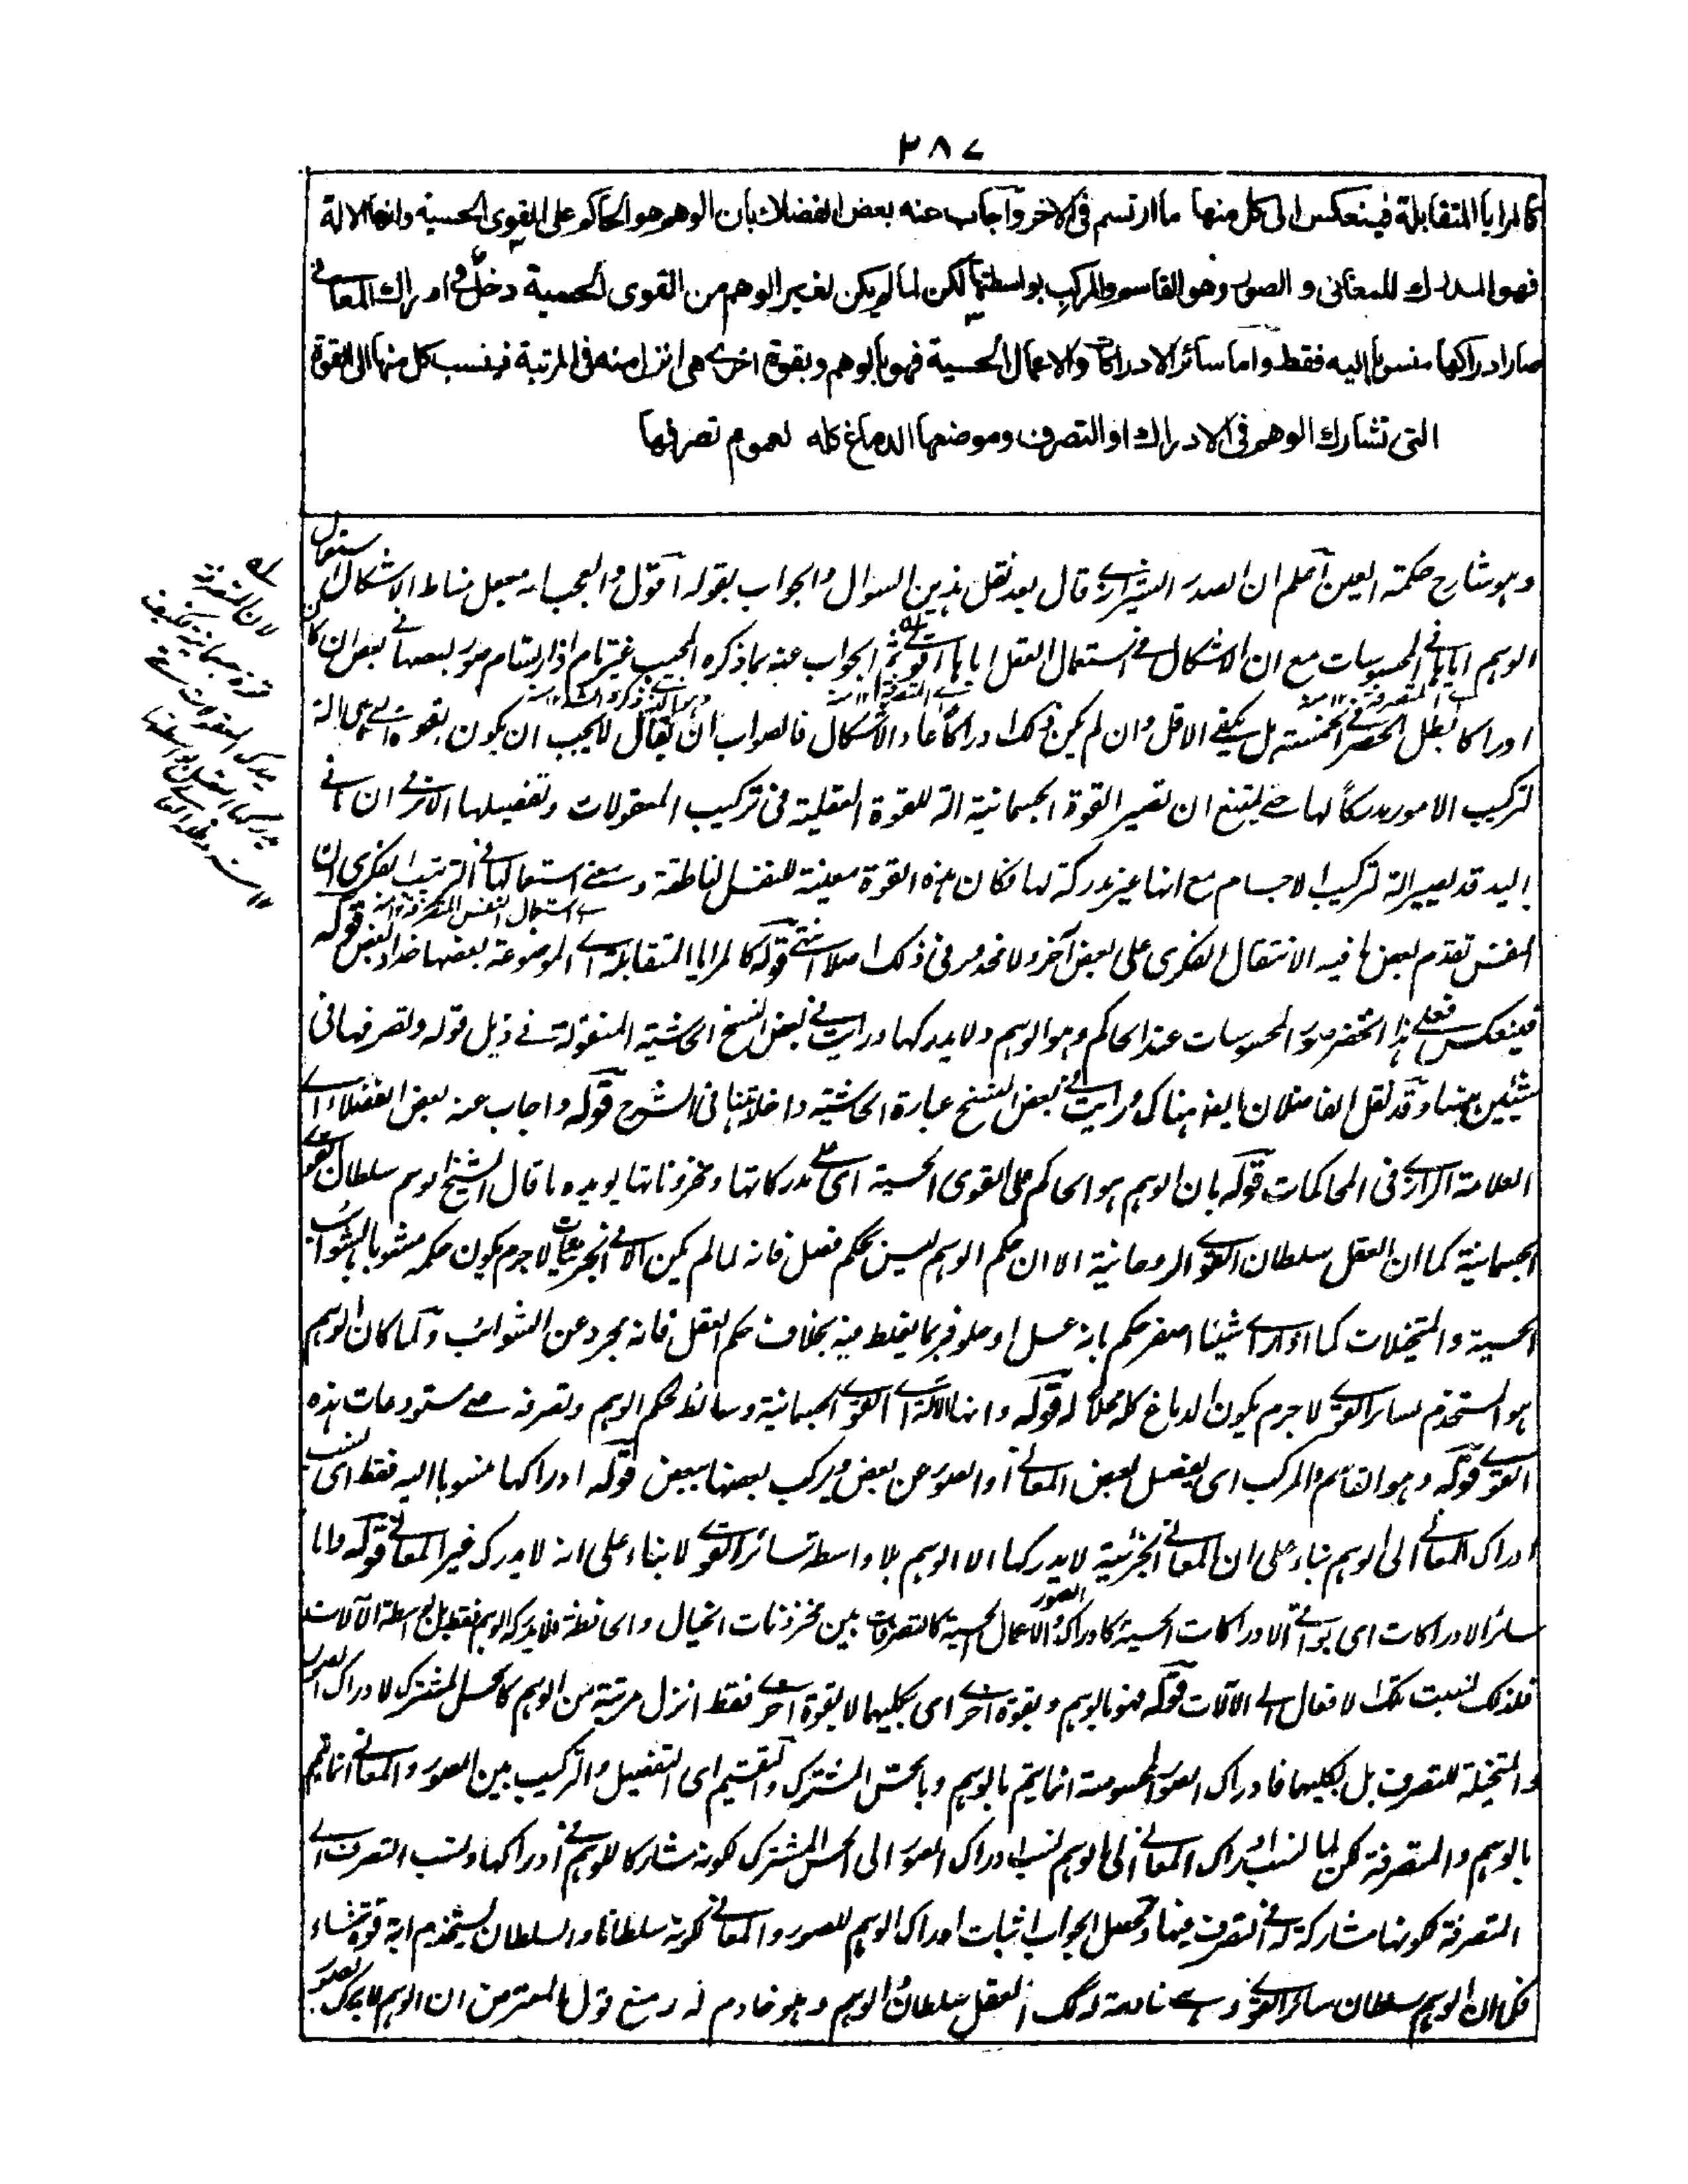 ٣٨٧
كالمرايا المتقابلة فينعكس الى كل منها ما ارتسم فى الاخر وآجاب عنه بعض الفضلاء بان الوهم هو الحاكم على القوى الحسية وانها الالة
فهو المدرك للمعانى و الصور وهو القاسم والمركب بواسطتها لكن لما لم يكن لغير الوهم من القوى الحسية دخل فى ادراك المعانى
صار ادراكها منسوبا اليه فقط واما سائر الادراكات والاعمال الحسية فهو بالوهم وبقوة اخرى هى انزل منه فى المرتبة فينسب كل منها الى القوة
التى تشارك الوهم فى الادراك او التصرف وموضعها الدماغ كله لعموم تصرفها
وهو شارح حكمة العين آعلم ان الصدر الشيرازى قال بعد نقل هذين السوال والجواب بقوله آقول والعجب انه جعل مناط الاشكال استعمال
الوهم اياها فى المحسوسات مع ان الاشكال فى استعمال العقل اياها اقوى ثم الجواب عنه بما ذكره المجيب غير تام اذ ارتسام صور بعضها فى بعض ان كان
ادراكا بطل الحصر فى الخمسة بل يكفى الاقل وان لم يكن ذلك ادراكا عاد الاشكال فالصواب ان يقال لا يجب ان يكون القوة التى هى الة
لتركيب الامور مدركا لها حتى يمتنع ان تصير القوة الجسمانية الة للقوة العقلية فى تركيب المعقولات وتفصيلها الا ترى ان
اليد قد تصير الة لتركيب الاجسام مع انها غير مدركة لها فكان هذه القوة معينة للنفس الناطقة و معنى استعمالها فى الترتيب الفكرى ان
النفس تقدم بعض ما فيه الانتقال الفكرى على بعض آخر ولا محذور فى ذلك اصلا انتهى قوله كالمرايا المتقابلة اى الموضوعة بعضها حذاء البعض قوله
فينعكس فعلى هذا تحضر صور المحسوسات عند الحاكم وهو الوهم ولا يدركها ورايت فى بعض النسخ الحاشية المنقولة فى ذيل قوله وتصرفها فى
شيئين ههنا وقد نقل الفاضلان ايضا هناك ورايت فى بعض النسخ عبارة الحاشية داخلة ههنا فى الشرح قوله واجاب عنه بعض الفضلاء اى
العلامة الرازى فى المحاكمات قوله بان الوهم هو الحاكم على القوى الحسية اى على مدركاتها ومخزوناتها يويده ما قال الشيخ الوهم سلطان القوى
الجسمانية كما ان العقل سلطان القوى الروحانية الا ان حكم الوهم ليس بحكم فصل فانه لما لم يكن الا فى الجزئيات لا جرم يكون حكمه مشوبا بالشوائب
الحسية والمتخيلات كما اذا راى شيئا اصفر حكم بانه عسل او حلو فربما يغلط فيه بخلاف حكم العقل فانه مجرد عن الشوائب ولما كان الوهم
هو المستخدم لسائر القوى لا جرم يكون الدماغ كله محلا له قوله وانها الالة اى القوى الجسمانية وسائط لحكم الوهم وتصرفه فى مستودعات هذه
القوى قوله وهو القاسم والمركب اى يفصل بعض المعانى او الصور عن بعض ويركب بعضها ببعض قوله ادراكها منسوبا اليه فقط اى نسب
ادراك المعانى الى الوهم بناء على ان المعانى الجزئية لا يدركها الا الوهم بلا واسطة سائر القوى لا بناء على انه لا يدرك غير المعانى قوله واما
سائر الادراكات اى بواقى الادراكات الحسية كادراك الصور والاعمال الحسية كالتصرفات بين مخزونات الخيال والحافظة فلا يدركه الوهم فقط بل بواسطة الآلات
فلذلك نسبت تلك الافعال الى الآلات قوله فهو بالوهم وبقوة اخرى اى بكليهما لا بقوة اخرى فقط انزل مرتبة من الوهم كالحس المشترك لادراك الصور
والمتخيلة للتصرف بل بكليهما فادراك الصور المحسوسة انما يتم بالوهم وبالحس المشترك والتقسيم اى التفصيل والتركيب بين الصور والمعانى انما يتم
بالوهم والمتصرفة لكن لما نسب ادراك المعانى الى الوهم نسب ادراك الصور الى الحس المشترك لكونه مشاركا للوهم فى ادراكها ونسب التصرف الى
المتصرفة لكونها مشاركة له فى التصرف فيها ومحصل الجواب اثبات ادراك الوهم للصور والمعانى لكونه سلطانا والسلطان يستخدم اية قوة شاء
فكما ان الوهم سلطان سائر القوى وهى خادمة له كذلك العقل سلطان الوهم وهو خادم له و منع قول المعترض ان الوهم لا يدرك الصور
لان المتصرفة
قوة جسمانية فكيف